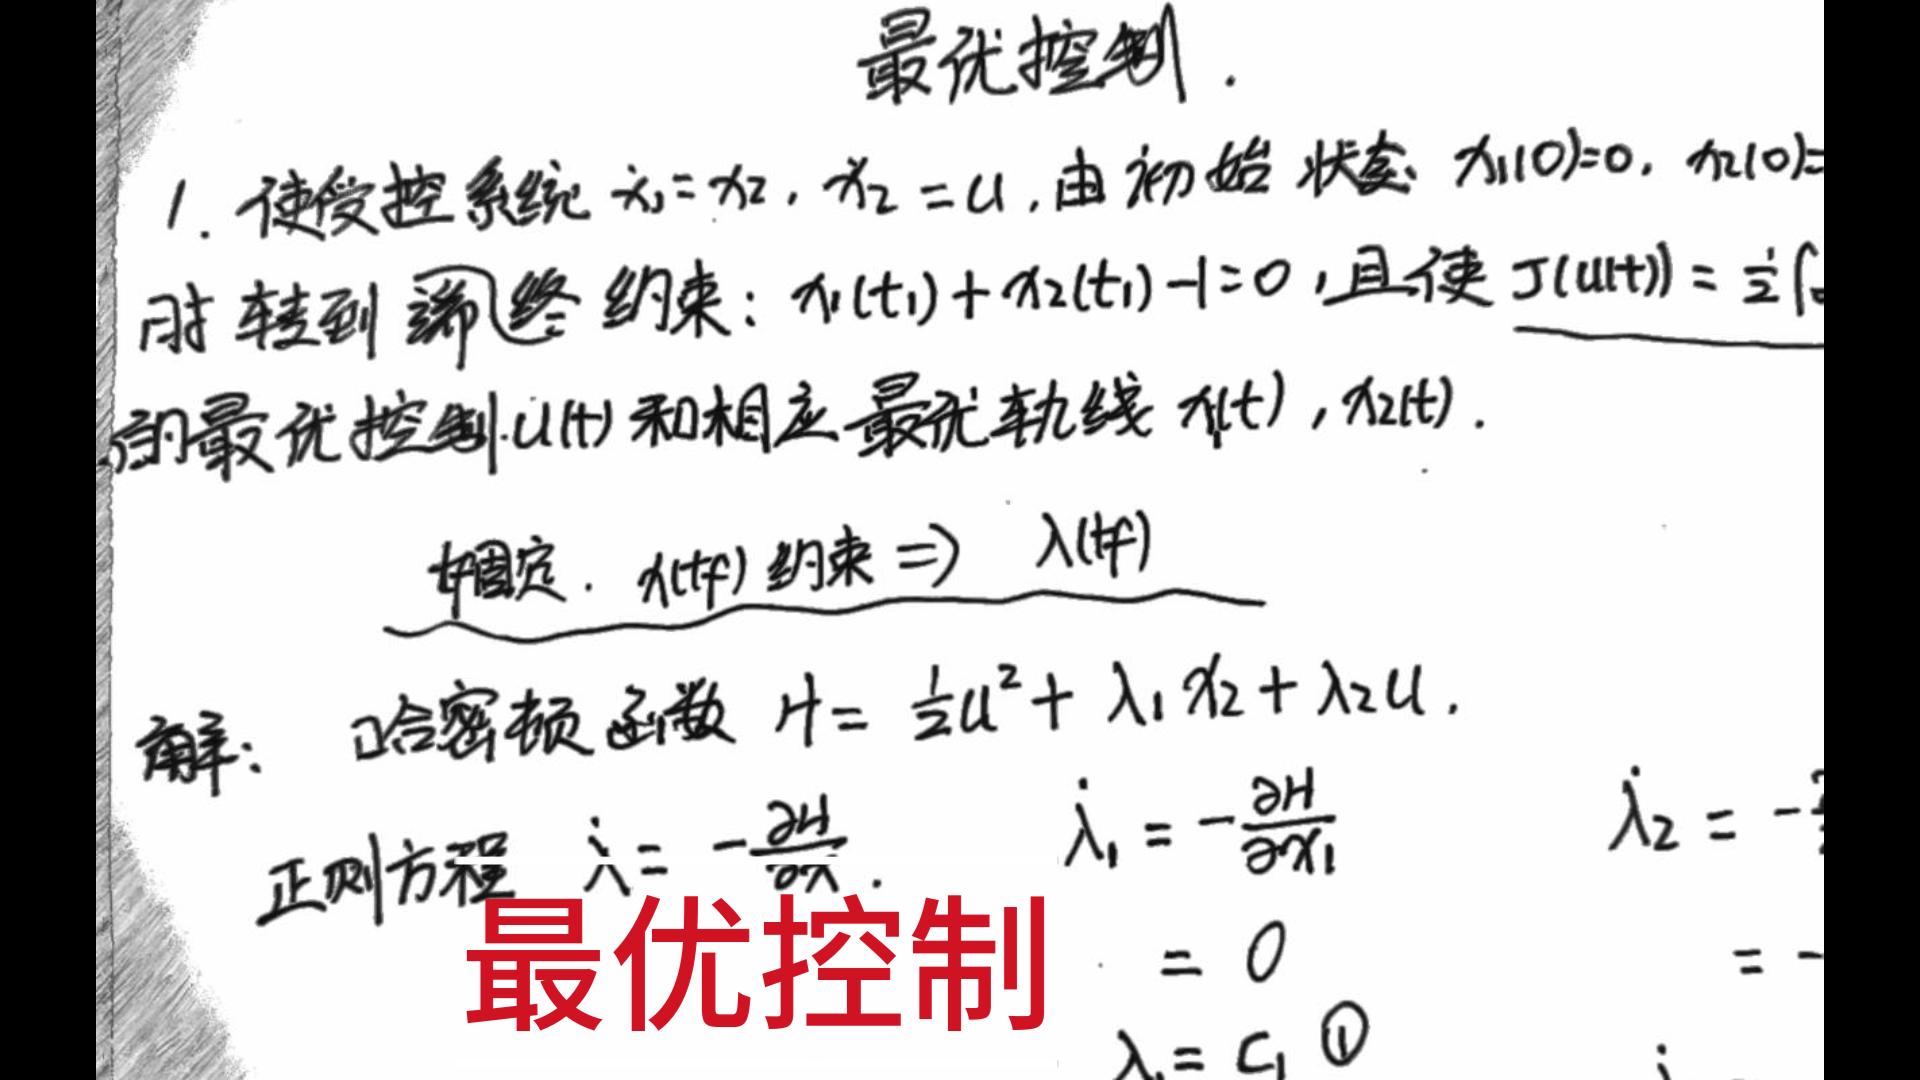 最优控制.
1. 使受控系统 ẋ₁=x₂, ẋ₂=u, 由初始状态 x₁(0)=0, x₂(0)=
时转到端终约束: x₁(t₁)+x₂(t₁)-1=0, 且使 J(u(t)) = ½∫₀
的最优控制 u(t) 和相应最优轨线 x₁(t), x₂(t).
tf固定. x(tf) 约束 => λ(tf)
解: 哈密顿函数 H = ½u² + λ₁x₂ + λ₂u.
正则方程 λ̇ = -∂H/∂x. λ̇₁ = -∂H/∂x₁ λ̇₂ = -
= 0 = -
最优控制
λ₁ = C₁ ①